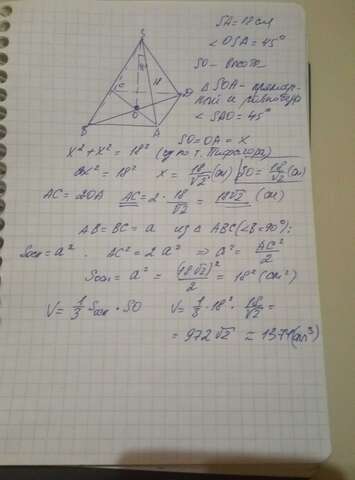 SA = 18 см
∠OSA = 45°
SO - высота
△SOA - прямоуг-
ный и равнобедр
∠SAO = 45°
S
45°
18
C
D
O
B
A
SO = OA = x
x² + x² = 18² (из по т. Пифагора)
2x² = 18² x = 18/√2 (см) SO = 18/√2 (см)
AC = 2OA AC = 2 · 18/√2 = 18√2 (см)
AB = BC = a из △ABC (∠B = 90°):
Sосн = a². AC² = 2a² ⇒ a² = AC²/2
Sосн = a² = (18√2)²/2 = 18² (см²)
V = 1/3 Sосн · SO V = 1/3 · 18² · 18/√2 =
= 972√2 ≈ 1374 (см³)